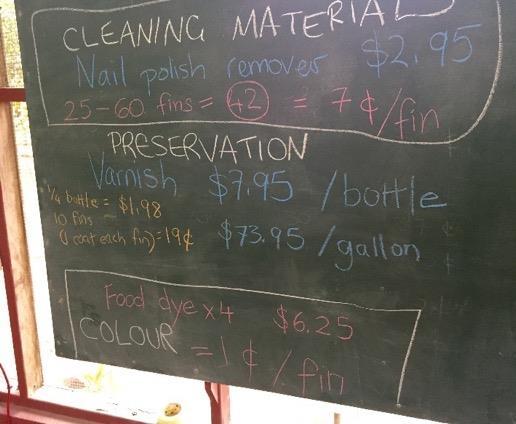 CLEANING MATERIAL
Nail polish remover $2.95
25-60 fins = 42 = 7¢/fin
PRESERVATION
Varnish $7.95 /bottle
1/4 bottle = $1.98
10 fins
(1 coat each fin) = 19¢ $73.95 /gallon
Food dye x4 $6.25
COLOUR = 1¢/fin